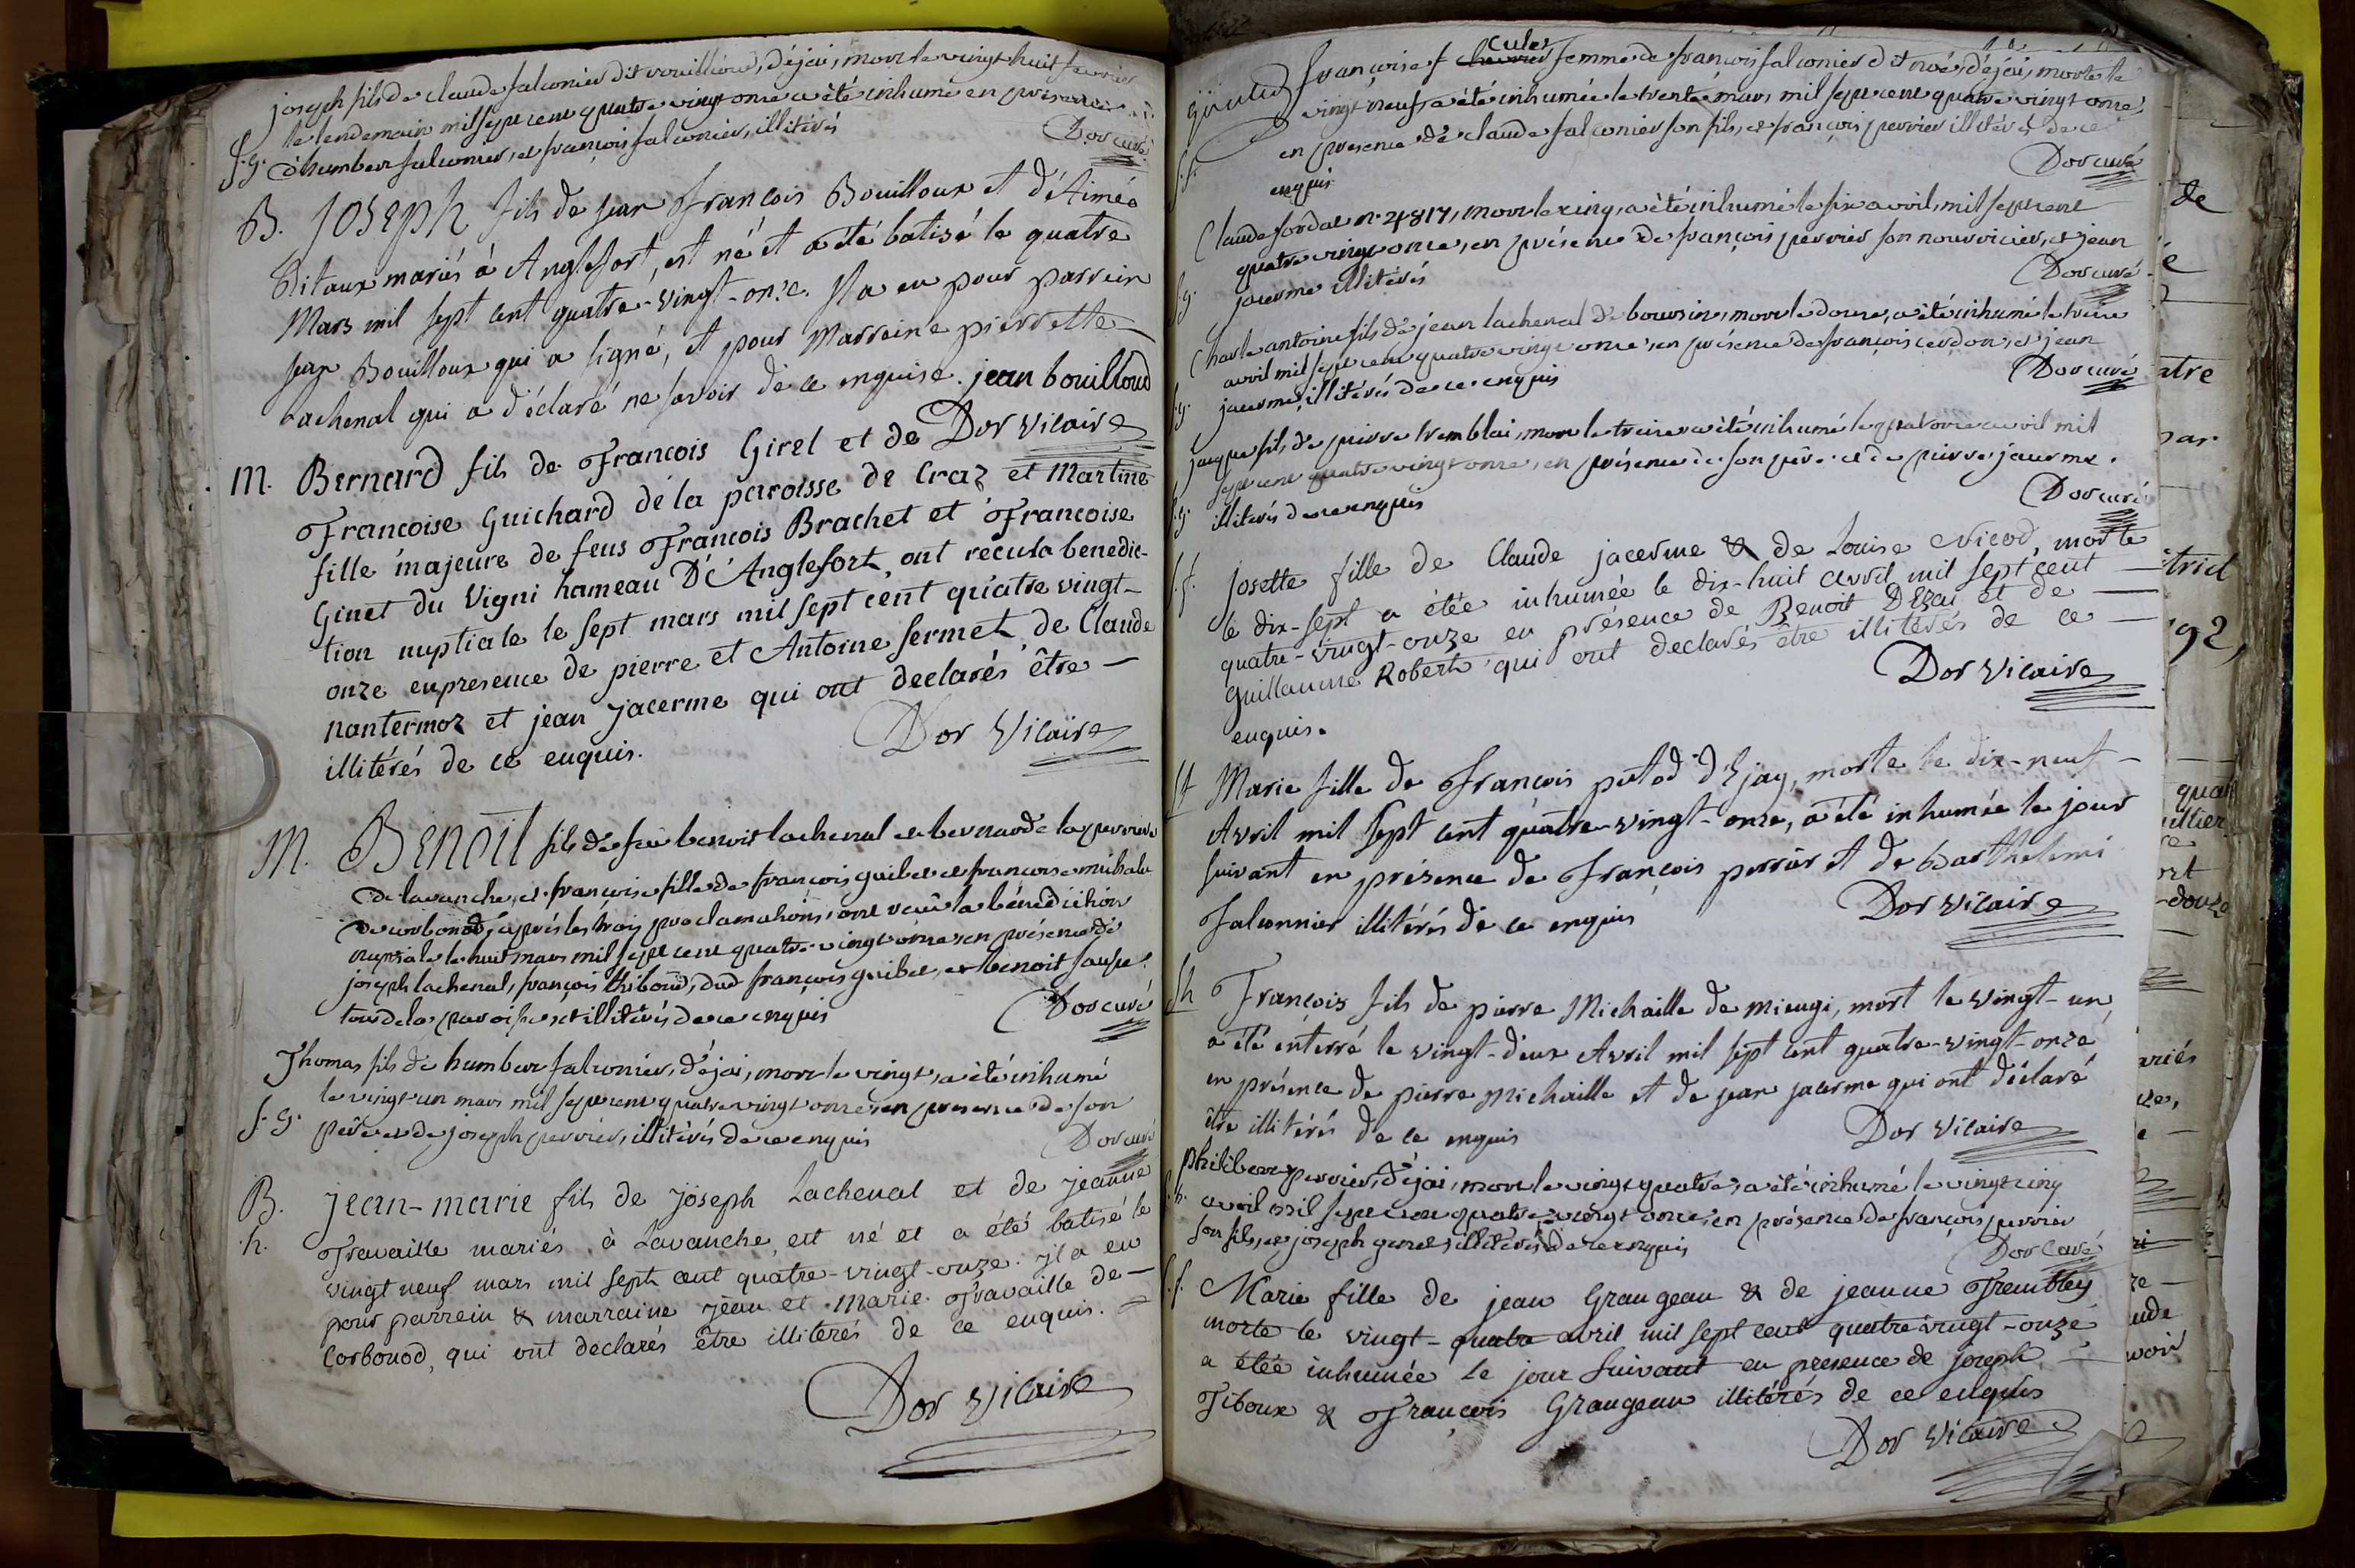 joseph fils de claude falconier dit vouilliou, d'éjai, mort le vingt huit fevrier
le lendemain mil sept cent quatre vingt onze a été inhumé en présence
S. g. d'humbert falconier, et françois falconier, illitérés
Dor curé
B. Joseph fils de jean François Bouilloux et d'Aimée
Ditaux mariés à Anglefort, est né et a été batisé le quatre
Mars mil sept cent quatre-vingt-onze. Il a eu pour parrein
jean Bouilloux qui a signé, et pour Marreine pierrette
Lachenal qui a déclaré ne savoir de ce enquise. jean bouilloud
Dor Vicaire
M. Bernard fils de François Girel et de
Francoise Guichard dé la paroisse de Craz et Martine
fille majeure de feus François Brachet et Francoise
Ginet du Vigni hameau D'Anglefort, ont recu la benedic-
tion nuptiale le sept mars mil sept cent quatre vingt-
onze en presence de pierre et Antoine fermet, de Claude
nantermoz et jean jacerme qui ont declarés être —
illitérés de ce enquis.
Dor Vicaire
M. Benoit fils de feu benoit lachenal et bernarde la perrière
de lavanche, et françoise fille de françois guibet et francoise michalet
de corbonod, après les trois proclamations, ont reçû la bénédiction
nuptiale le huit mars mil sept cent quatre-vingt onze en présence de
joseph lachenal, françois thiboud, dud françois guibet, et benoit
tous de la paroisse et illitérés de ce enquis
Dor curé
Thomas fils de humbert falconier, d'éjai, mort le vingt, a été inhumé
le vingt un mars mil sept cent quatre vingt onze en presence de son
S. g. père et de joseph perrier, illitérés de ce enquis
Dor curé
B. jean-marie fils de joseph Lachenal et de jeanne
h. Travaille mariés à Lavanche, est né et a été batisé le
vingt neuf mars mil sept cent quatre-vingt-onze. il a eu
pour parrein & marraine jean et Marie Travaille de —
Corbonod, qui ont declarés être illiterés de ce enquis.
Dor Vicaire
culet
françoise f femme de françois falconier dit noé, d'éjai, morte le
vingt neuf, a été inhumée le trente mars mil sept cent quatre vingt onze,
en presence de claude falconier son fils, et françois perrier illitérés de ce
S. f. enquis
Dor curé
Claude fordat n° 4817, mort le cinq, a été inhumé le six avril, mil sept cent
quatre vingt onze, en présence de françois perrier son nourricier, et jean
S. g. jacerme illitérés
Dor curé
Charle antoine fils de jean lachenal de boursin, mort le douze, a été inhumé le treize
avril mil sept cent quatre vingt onze, en présence de françois cerdon, et jean
S. g. jacerme, illitérés de ce enquis
Dor curé
jacque fils de pierre tremblai, mort le treize a été inhumé le quatorze avril mil
sept cent quatre vingt onze, en présence de son père et de pierre jacerme.
S. g. illitérés de ce enquis
Dor curé
S. f. josette fille de Claude jacerme & de Louise Nicod, morte
le dix-sept a étée inhumée le dix-huit avril mil sept cent
quatre-vingt-onze en présence de Benoit D'Ezai et de —
guillaume Robert qui ont declarés être illitérés de ce —
enquis.
Dor Vicaire
Sf Marie fille de François putod d'Ejay, morte le dix-neuf —
Avril mil sept cent quatre-vingt-onze, a été inhumée le jour
suivant en présence de François perrier et de Barthelemi
Falconnier illitérés de ce enquis
Dor Vicaire
Sh François fils de pierre Michaille de mieugi, mort le vingt-un,
a été enterré le vingt-deux Avril mil sept cent quatre-vingt-onze
en présence de pierre Michaille et de jean jacerme qui ont déclaré
être illitérés de ce enquis
Dor Vicaire
philibert perrier, d'éjai, mort le vingt quatre, a été inhumé le vingt cinq
S. h. avril mil sept cent quatre-vingt onze, en présence de françois perrier
son fils, et joseph genet, illitérés de ce enquis
Dor Curé
S. f. Marie fille de jean Graugeau & de jeanne Trembley
morte le vingt-quatre avril mil sept cent quatre vingt-onze
a étée inhumée le jour suivant en presence de joseph —
Tiboux & François Graugeau illitérés de ce enquis
Dor Vicaire
de
atre
par
trict
92,
douze
ariés